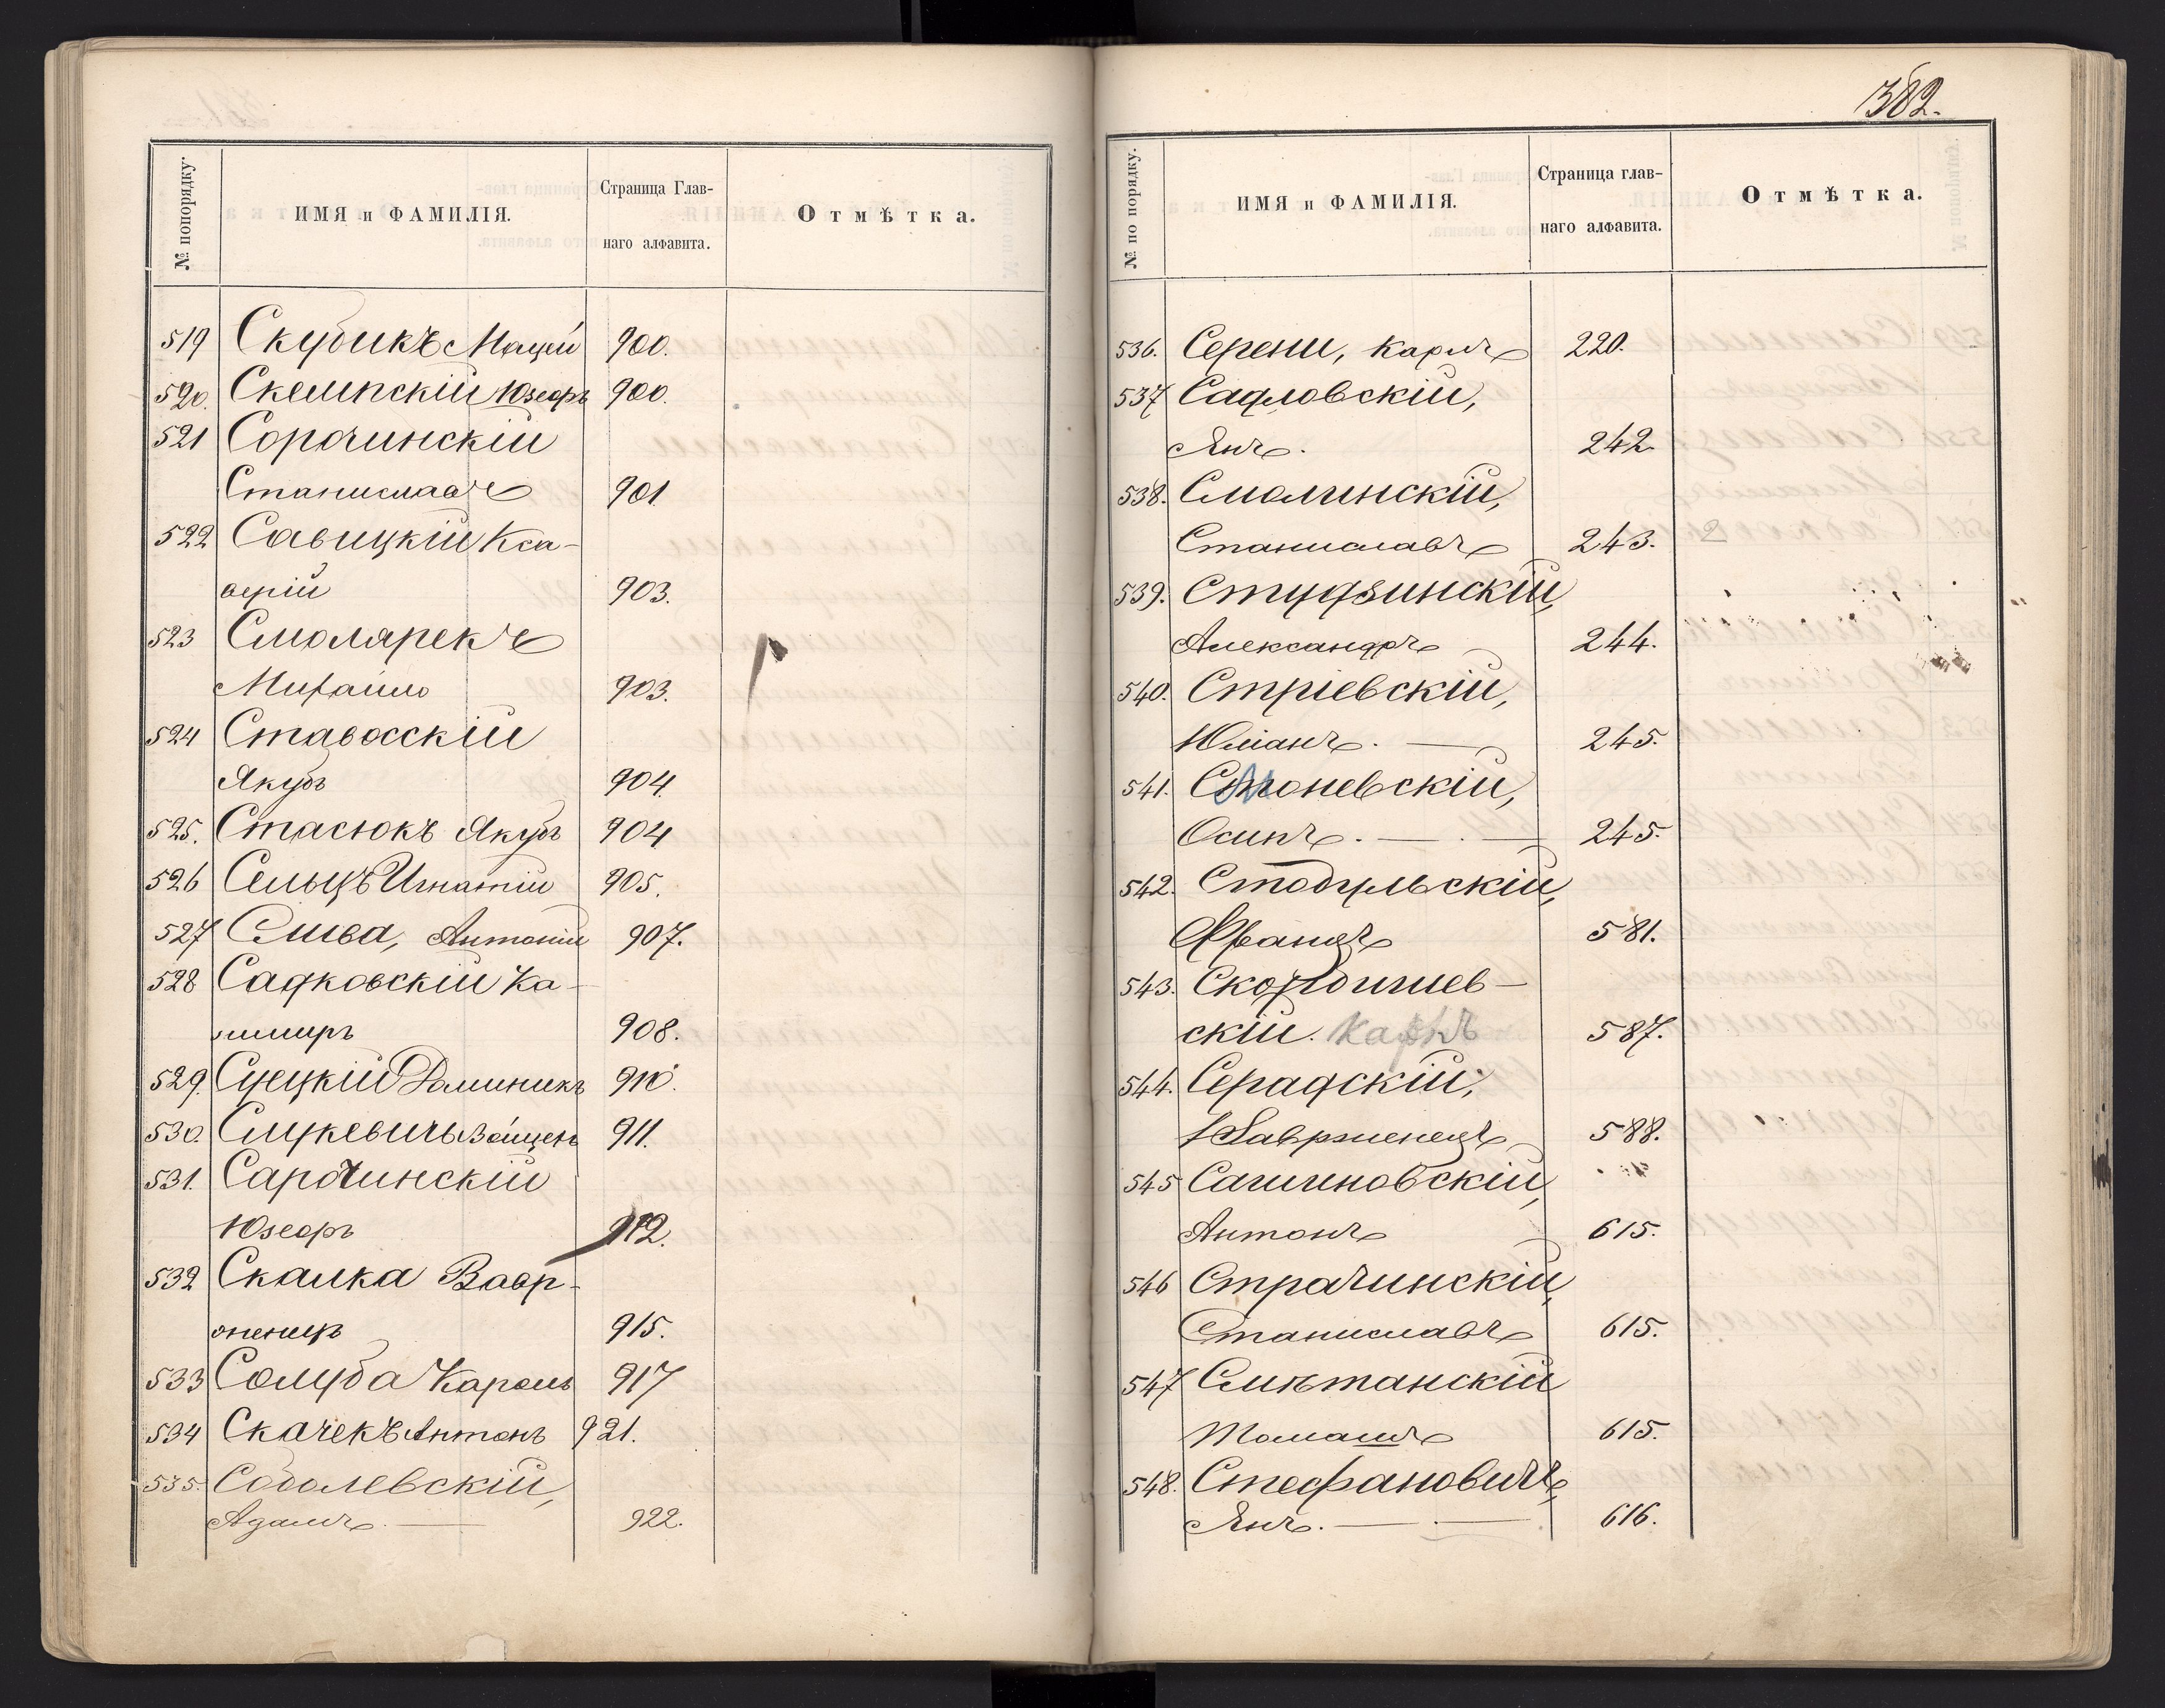 № по порядку.
ИМЯ и ФАМИЛІЯ.
Страница Глав-
наго алфавита.
Отмѣтка.
519 Скубикъ Мацей 900.
520. Скемпскій Юзефъ 900.
521 Сорочинскій
Станиславъ 901
522 Савицкій Кса-
верій 903.
523 Смолярекъ
Михайло 903.
524 Ставосскій
Якубъ 904
525. Стасюкъ Якубъ 904
526 Сельцъ Игнатій 905.
527 Слива, Антоній 907.
528 Садковскій Ка-
зимиръ 908.
529. Суецкій Доминикъ 910.
530. Слуцкевичъ Войцех 911.
531. Сарочинскій
Юзефъ 912.
532 Скалка Вавр-
женецъ 915.
533 Солуба Кароль 917
534 Скачекъ Антонъ 921.
535. Соболевскій,
Адамъ. — 922.
382.
№ по порядку.
ИМЯ и ФАМИЛІЯ.
Страница глав-
наго алфавита.
Отмѣтка.
536. Серени, Карлъ 220.
537 Садловскій,
Янъ. 242.
538. Смолинскій,
Станиславъ 243.
539. Студзинскій,
Александръ 244.
540. Стріевскій,
Юліанъ. — 245.
541. Смоневскій,
Осипъ. — . — 245.
542. Стодульскій,
Францъ 581.
543. Скордишев-
скій. Карлъ 587.
544. Серадскій,
Лаврженецъ 588.
545 Сачиновскій,
Антонъ 615.
546 Страчинскій,
Станиславъ 615.
547 Смѣтанскій
Томашъ 615.
548. Стефановичъ,
Янъ. — . — 616.